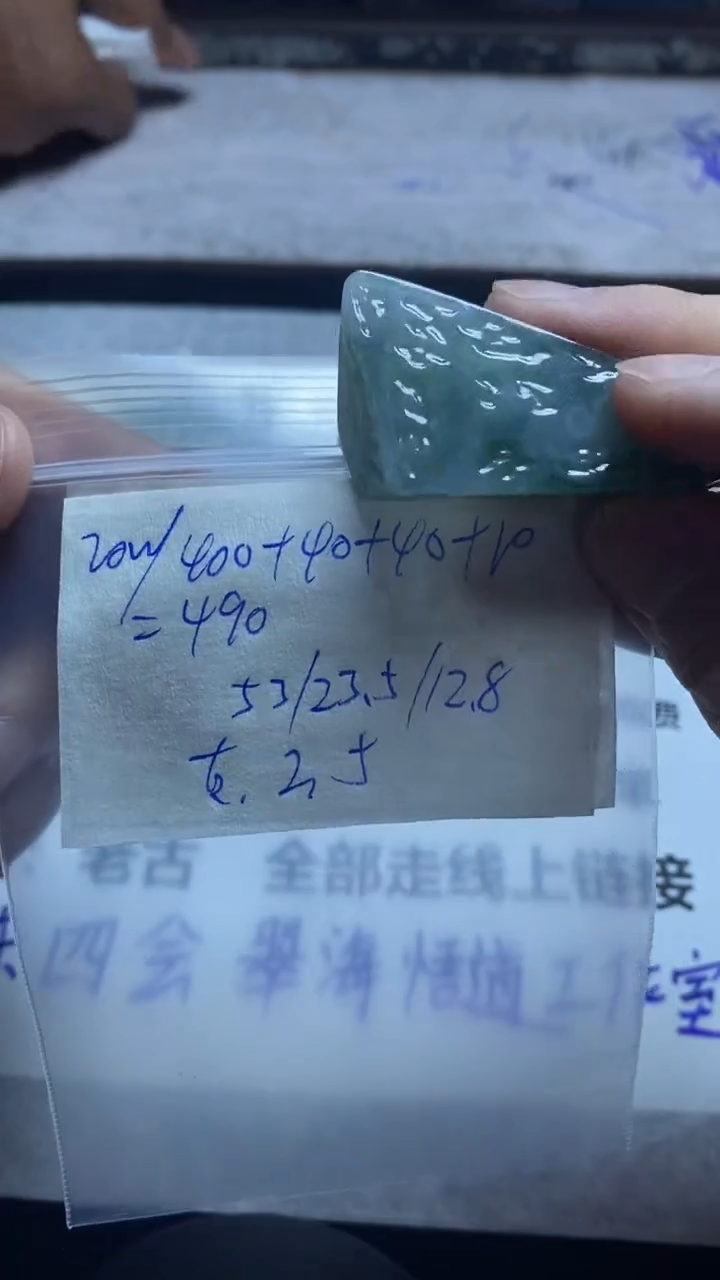 20w/400+40+40+10
=490
53/23.5/12.8
2.5
费
老古 全部走线上链接
四会 翠海悟道工作室